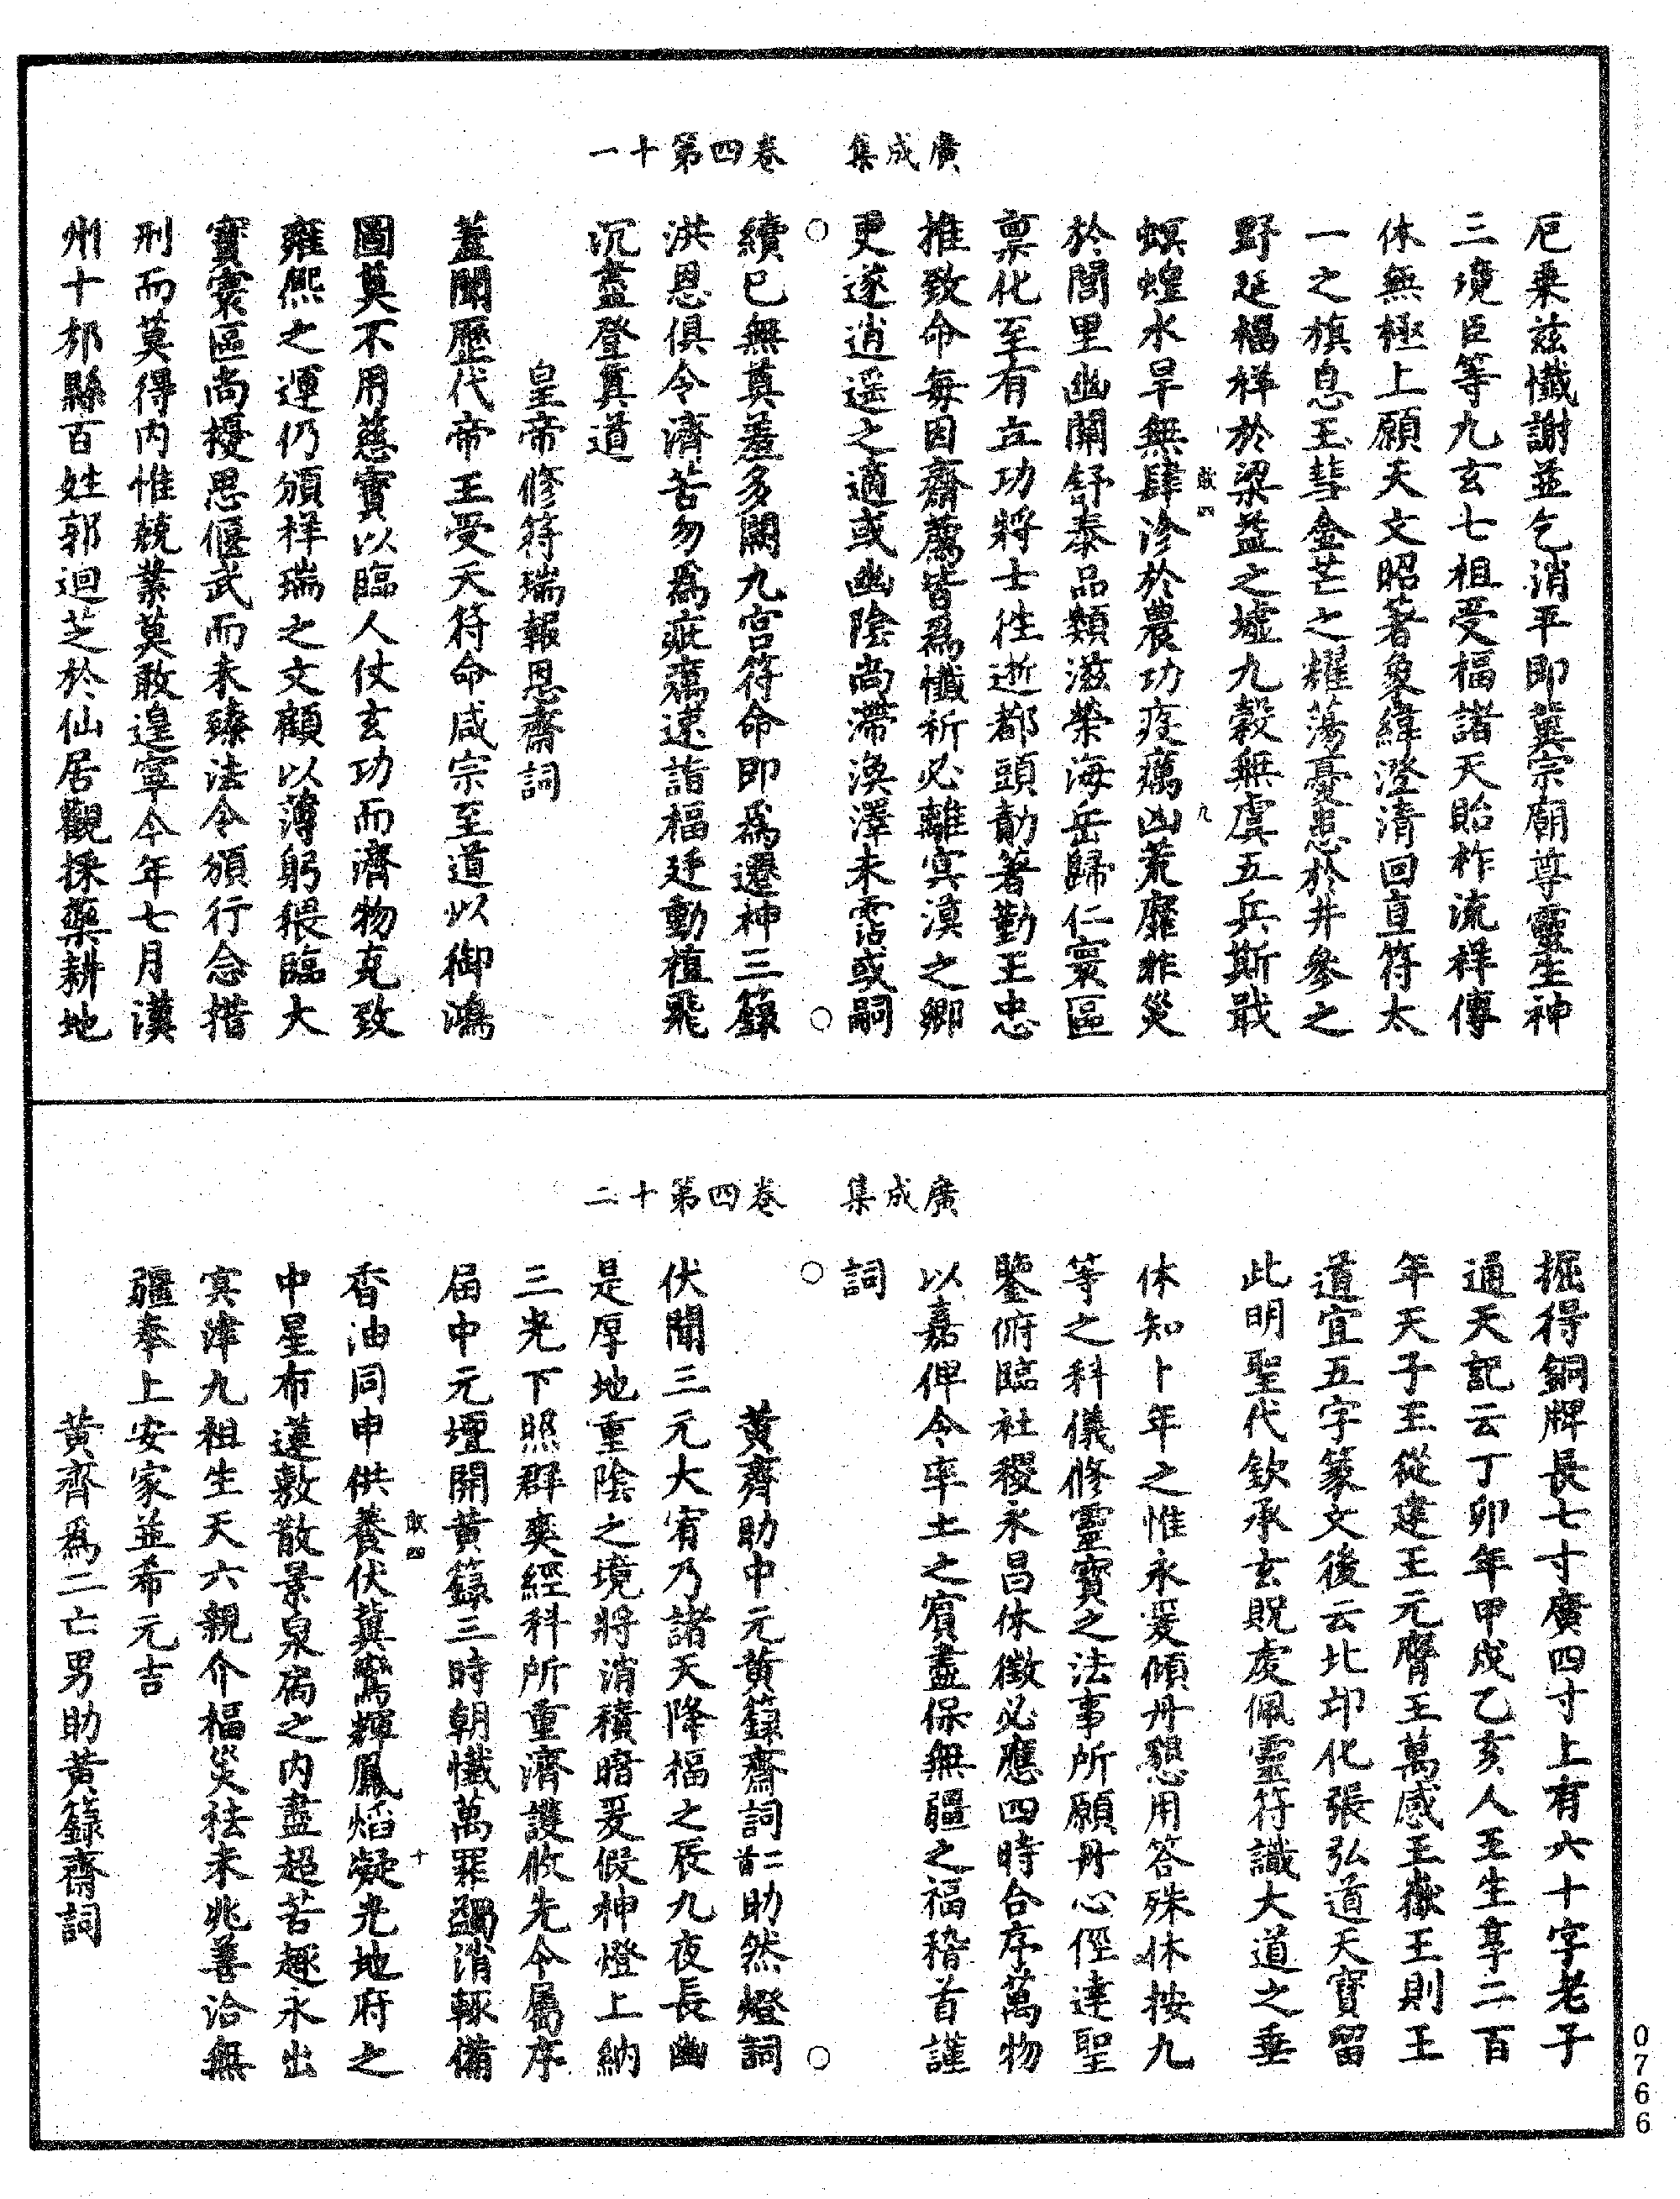 廣成集　卷四第十一
厄乘茲懺謝並乞消平即冀宗廟尊靈生神
三境臣等九玄七祖受福諸天貽祚流祥傳
休無極上願天文昭著象緯澄清回直符太
一之旗息王彗金芒之耀蕩憂患於井參之
野延福祥於梁益之墟九穀無虞五兵斯戢
敢四　九
螟蝗水旱無肆沴於農功疫癘凶荒靡非災
於閭里幽關舒泰品類滋榮海岳歸仁寰區
禀化至有立功將士徃逝都頭勣著勤王忠
推致命每因齋薦皆爲懺祈必離冥漠之鄉
更遂逍遥之適或幽陰尚滯渙澤未霑或嗣
續已無奠羞多闕九宮符命即爲遷神三籙
洪恩俱令濟苦勿爲疵癘速詣福廷動植飛
沉盡登真道
皇帝修符瑞報恩齋詞
蓋聞歷代帝王受天符命咸宗至道以御鴻
圖莫不用慈寶以臨人仗玄功而濟物克致
雍熈之運仍頒祥瑞之文顧以薄躬猥臨大
寶寰區尚擾思偃武而未臻法令頒行念措
刑而莫得内惟兢業莫敢遑寧今年七月漢
州十邡縣百姓郭迴芝於仙居觀採藥耕地
廣成集　卷四第十二
掘得銅牌長七寸廣四寸上有六十字老子
通天記云丁卯年甲戌乙亥人王生享二百
年天子王從建王元膺王萬感王嶽王則王
道宜五字篆文後云此印化張弘道天寶留
此明聖代欽承玄貺虔佩靈符讖大道之垂
休知卜年之惟永爰傾丹懇用答殊休按九
等之科儀修靈寶之法事所願丹心俓達聖
鑒俯臨社稷永昌休徵必應四時合序萬物
以嘉俾令率土之賓盡保無疆之福稽首謹
詞
黄齊助中元黄籙齋詞二首助然燈詞
伏聞三元大宥乃諸天降福之辰九夜長幽
是厚地重陰之境將消積暗爰假神燈上納
三光下照群爽經科所重濟護攸先今屬序
届中元壇開黄籙三時朝懺萬罪蠲消輒備
敢四　十
香油同申供養伏冀鸞輝鳳焰凝光地府之
中星布蓮敷散景泉扃之内盡超苦趣永出
冥津九祖生天六親介福災祛未兆善洽無
疆奉上安家並希元吉
黄齊爲二亡男助黄籙齋詞
0766